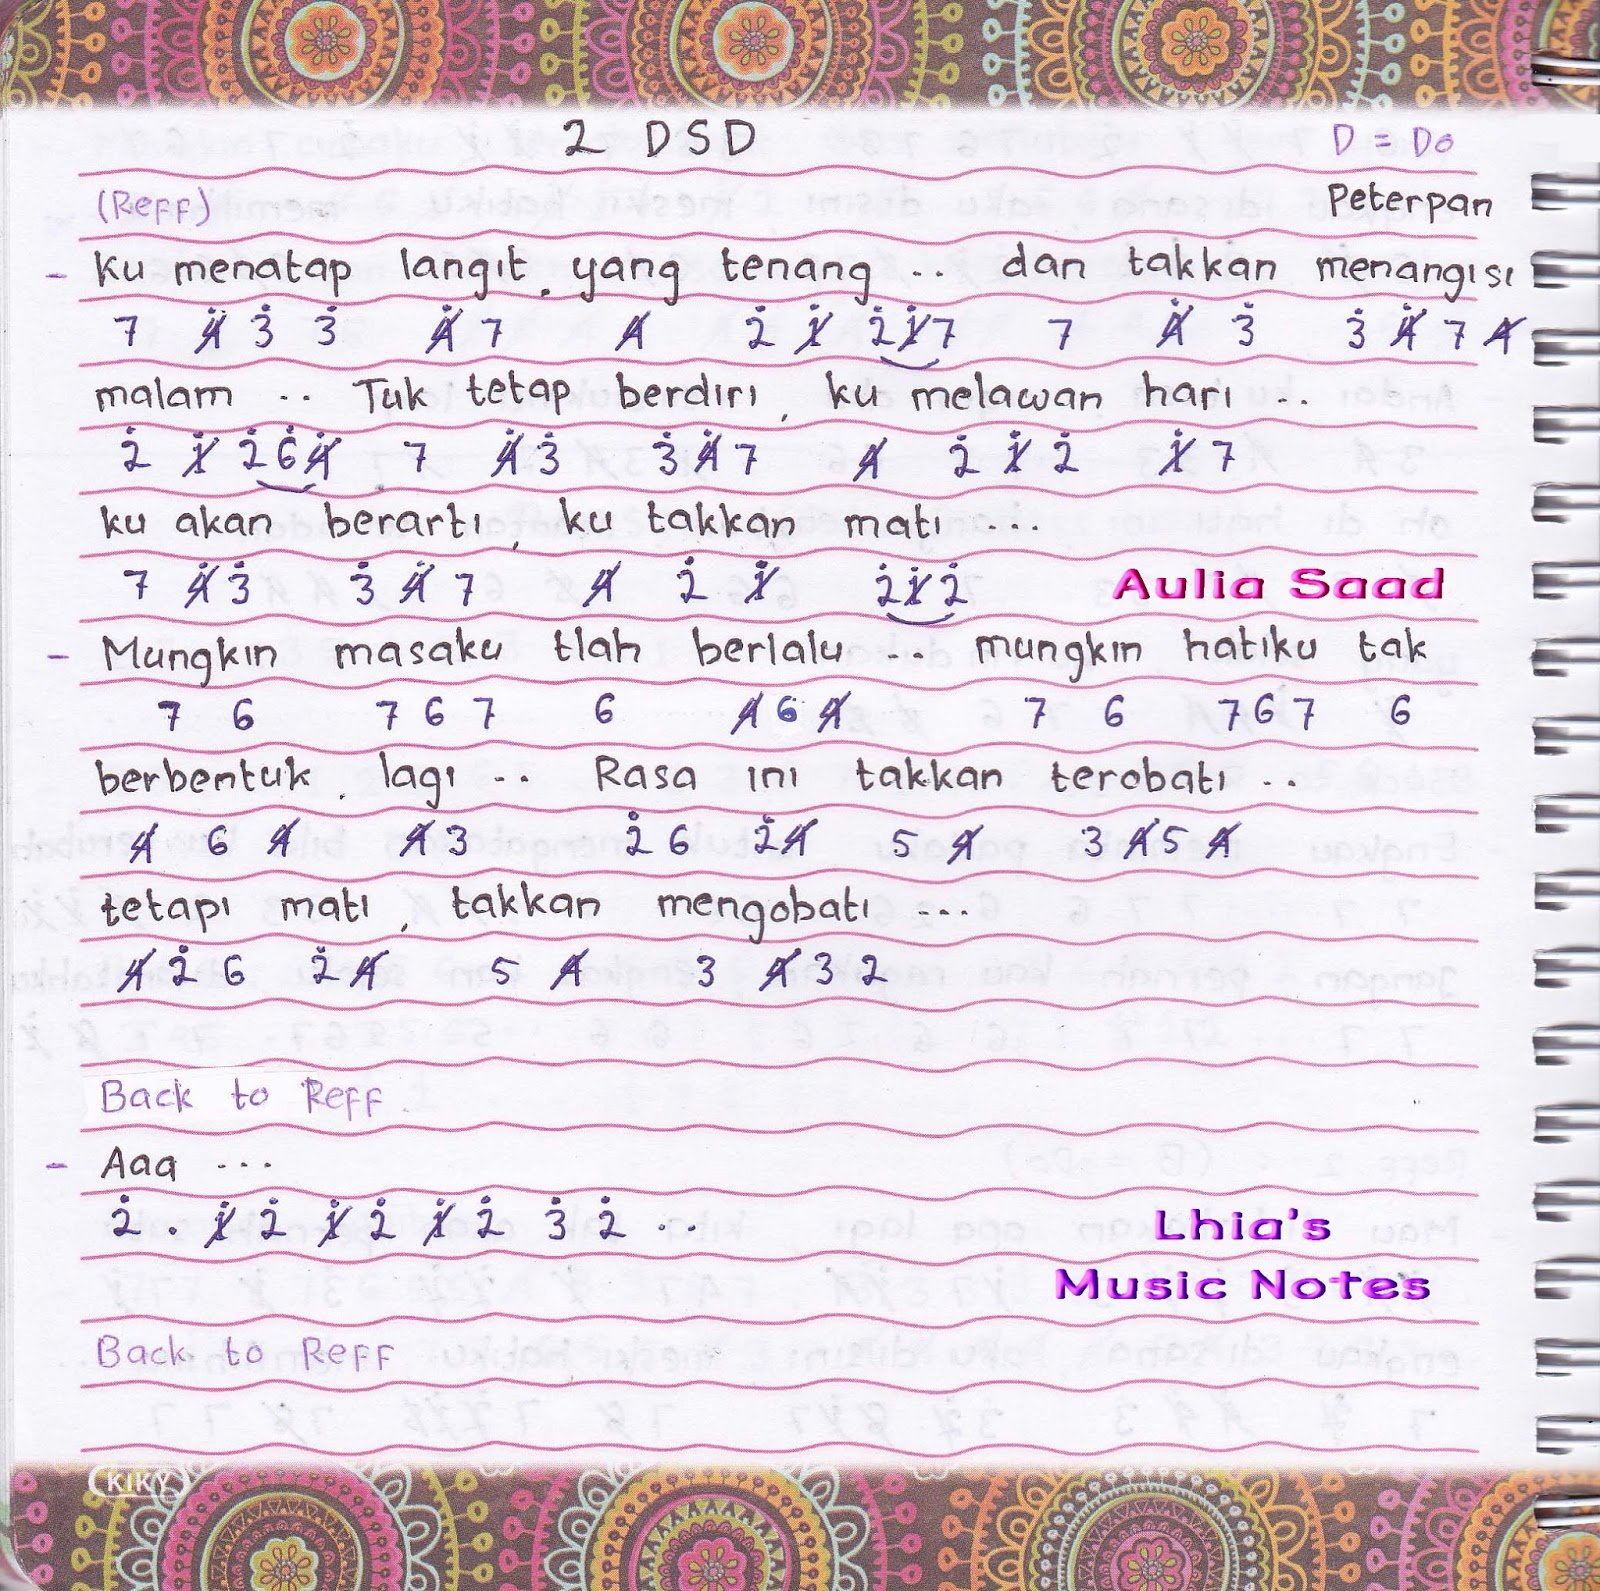 2 DSD
D = Do
(Reff)
Peterpan
- Ku menatap langit, yang tenang .. dan takkan menangisi
7 4̸̇ 3̇ 3̇ 4̸̇ 7 4̸ 2̇ 1̸̇ 2̇ 1̸̇ 7 7 4̸̇ 3̇ 3̇ 4̸̇ 7 4̸
malam .. Tuk tetap berdiri, ku melawan hari ..
2̇ 1̸̇ 2̇ 6̇ 4̸̇ 7 4̸̇ 3̇ 3̇ 4̸̇ 7 4̸ 2̇ 1̸̇ 2̇ 1̸̇ 7
ku akan berarti, ku takkan mati ...
7 4̸̇ 3̇ 3̇ 4̸̇ 7 4̸ 2̇ 1̸̇ 2̇ 1̸̇ 2̇
Aulia Saad
- Mungkin masaku tlah berlalu .. mungkin hatiku tak
7 6 7 6 7 6 4̸ 6 4̸ 7 6 7 6 7 6
berbentuk, lagi .. Rasa ini takkan terobati ..
4̸ 6 4̸ 4̸ 3 2̇ 6 2̇ 4̸ 5 4̸ 3 4̸ 5 4̸
tetapi mati, takkan mengobati ...
4̸ 2̇ 6 2̇ 4̸ 5 4̸ 3 4̸ 3 2
Back to Reff
- Aaa ...
2̇ . 1̸̇ 2̇ 1̸̇ 2̇ 1̸̇ 2̇ 3̇ 2̇ ..
Lhia's
Music Notes
Back to Reff
KIKY